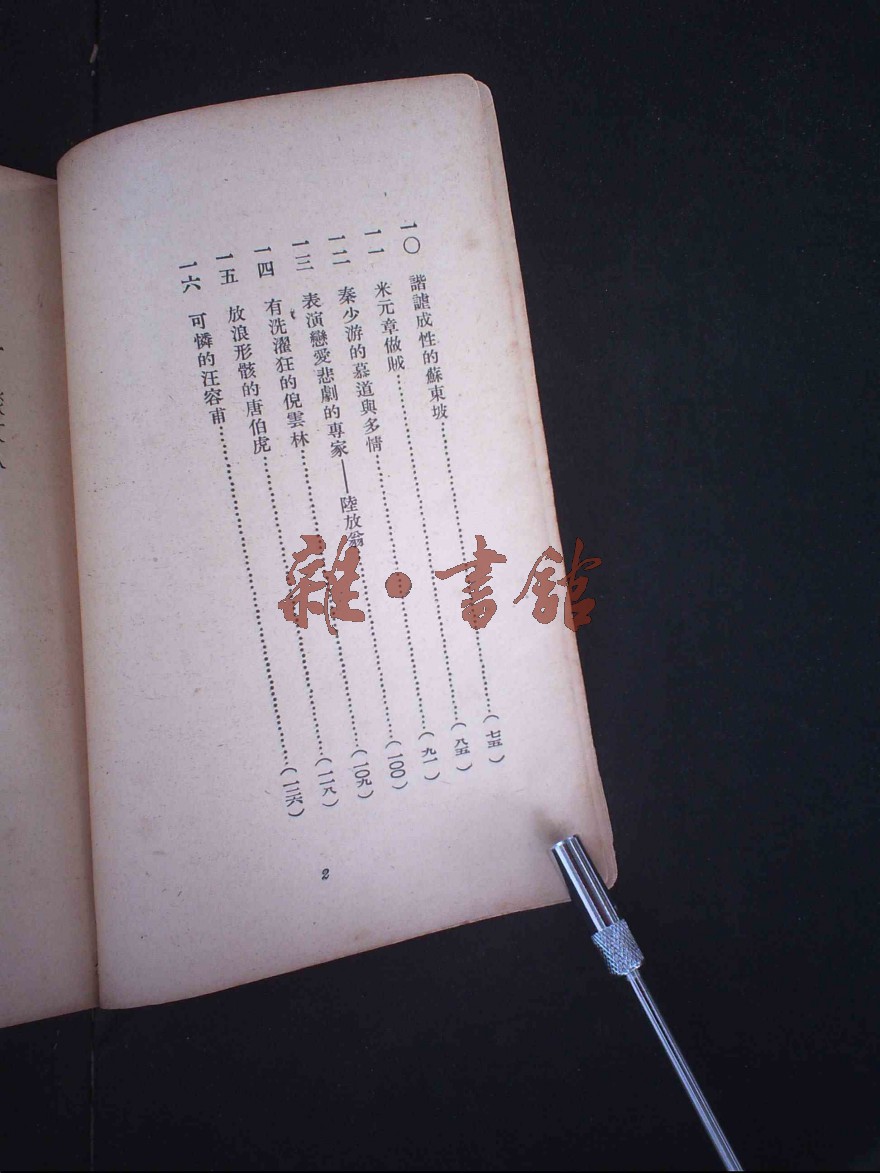 一〇 諧謔成性的蘇東坡……(七五)
一一 米元章做賊……(八五)
一二 秦少游的慕道與多情……(九一)
一三 表演戀愛悲劇的專家——陸放翁……(一〇〇)
一四 有洗濯狂的倪雲林……(一〇九)
一五 放浪形骸的唐伯虎……(一一八)
一六 可憐的汪容甫……(一二六)
2
雜·書館